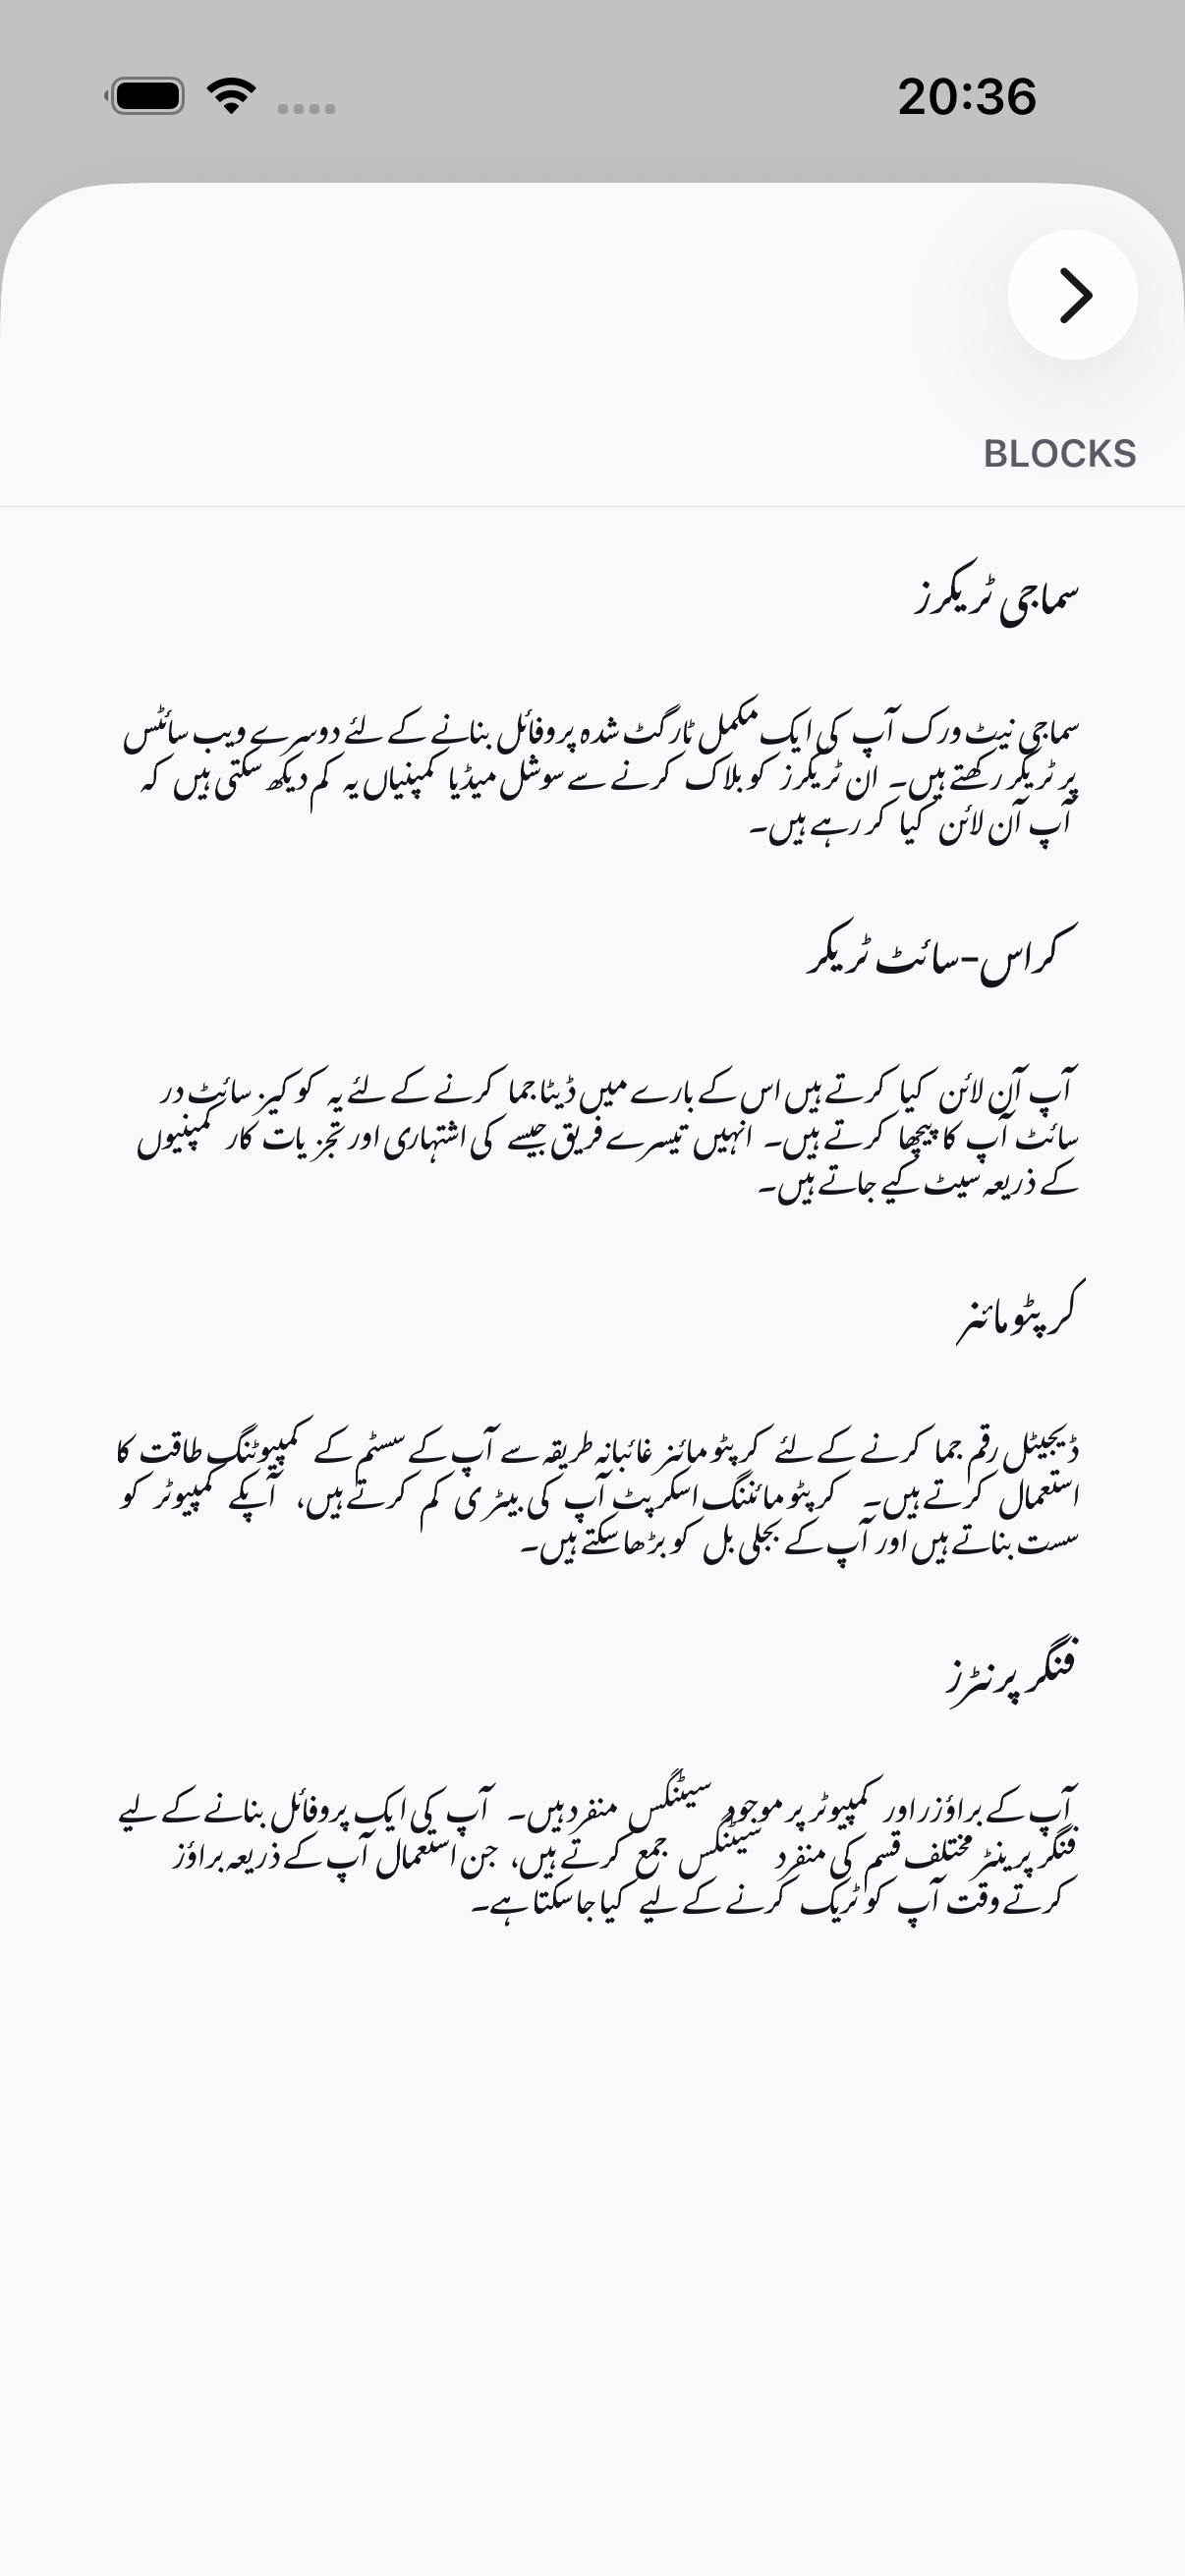 20:36
BLOCKS
سماجی ٹریکرز
سماجی نیٹ ورک آپ کی ایک مکمل ٹارگٹ شدہ پروفائل بنانے کے لئے دوسرے ویب سائٹس
پر ٹریکر رکھتے ہیں۔ ان ٹریکرز کو بلاک کرنے سے سوشل میڈیا کمپنیاں یہ کم دیکھ سکتی ہیں کہ
آپ آن لائن کیا کر رہے ہیں۔
کراس-سائٹ ٹریکر
آپ آن لائن کیا کرتے ہیں اس کے بارے میں ڈیٹا جما کرنے کے لئے یہ کوکیز سائٹ در
سائٹ آپ کا پیچھا کرتے ہیں۔ انہیں تیسرے فریق جیسے کی اشتہاری اور تجزیات کار کمپنیوں
کے ذریعہ سیٹ کیے جاتے ہیں۔
کرپٹومائنر
ڈیجیٹل رقم جما کرنے کے لئے کرپٹومائنز غائبانہ طریقہ سے آپ کے سسٹم کے کمپیوٹنگ طاقت کا
استعمال کرتے ہیں۔ کرپٹومائننگ اسکرپٹ آپ کی بیٹری کم کرتے ہیں، آپکے کمپیوٹر کو
سست بناتے ہیں اور آپ کے بجلی بل کو بڑھا سکتے ہیں۔
فنگر پرنٹرز
آپ کے براؤزر اور کمپیوٹر پر موجود سیٹنگس منفرد ہیں۔ آپ کی ایک پروفائل بنانے کے لیے
فنگر پرینٹر مختلف قسم کی منفرد سیٹنگس جمع کرتے ہیں، جن استعمال آپ کے ذریعہ براؤز
کرتے وقت آپ کو ٹریک کرنے کے لیے کیا جا سکتا ہے۔